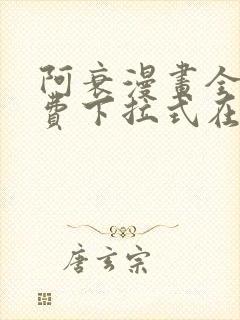 阿衰漫畫全
費下拉式在
唐玄宗